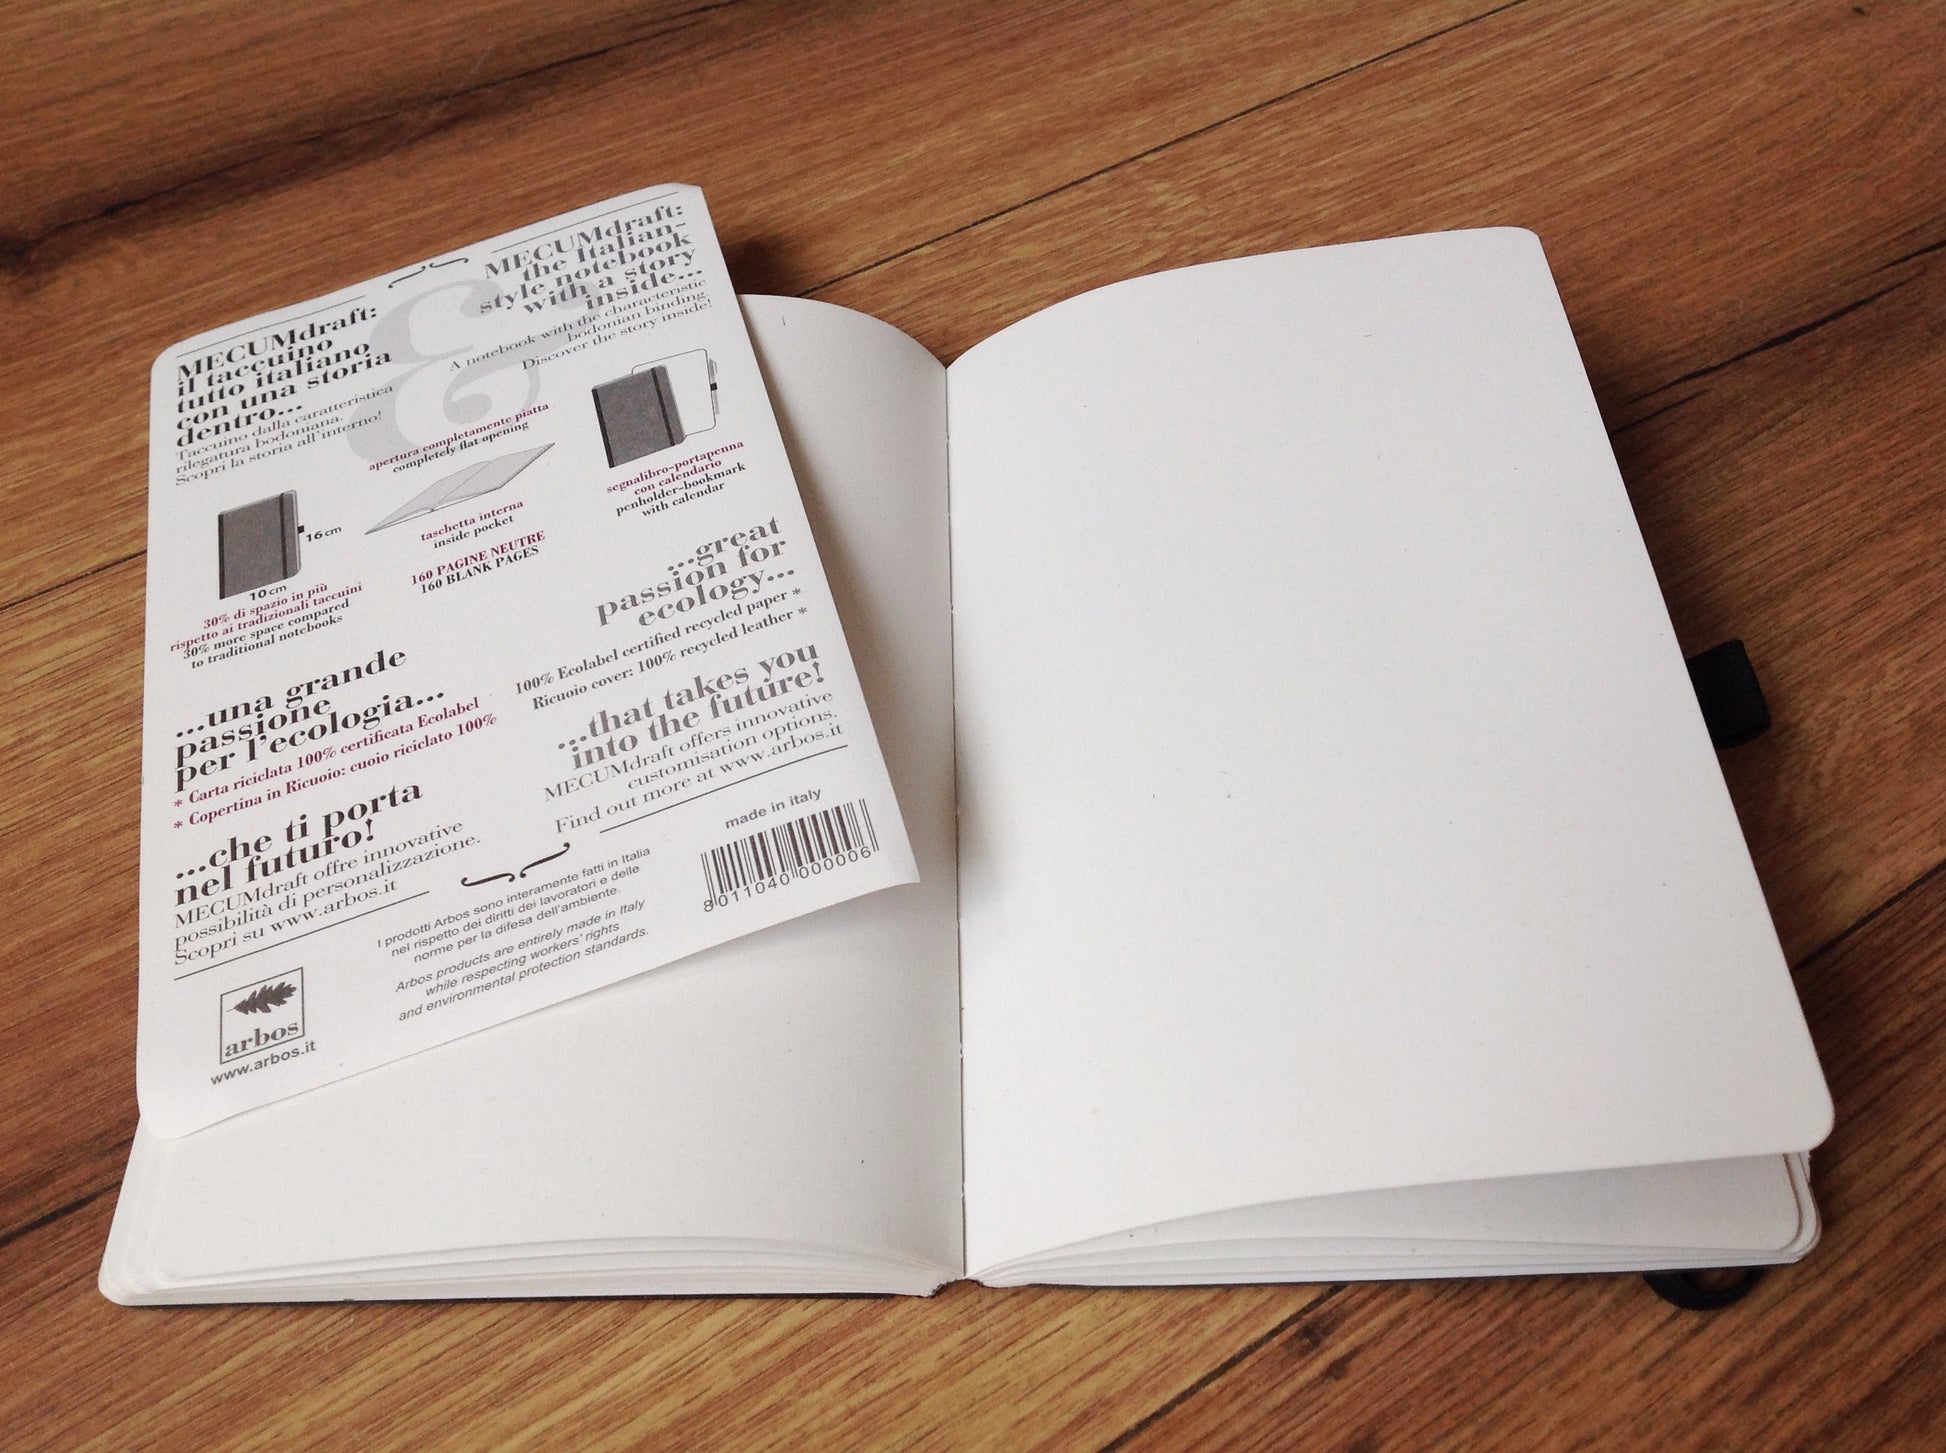 MECUMdraft:
il taccuino
tutto italiano
con una storia
dentro...
Taccuino dalla caratteristica
rilegatura bodoniana.
Scopri la storia all'interno!
&
MECUMdraft:
the Italian-
style notebook
with a story
inside...
A notebook with the characteristic
bodonian binding.
Discover the story inside!
16 cm
10 cm
30% di spazio in più
rispetto ai tradizionali taccuini
30% more space compared
to traditional notebooks
apertura completamente piatta
completely flat opening
taschetta interna
inside pocket
160 PAGINE NEUTRE
160 BLANK PAGES
segnalibro-portapenna
con calendario
penholder-bookmark
with calendar
...una grande
passione
per l'ecologia...
* Carta riciclata 100% certificata Ecolabel
* Copertina in Ricuoio: cuoio riciclato 100%
...che ti porta
nel futuro!
MECUMdraft offre innovative
possibilità di personalizzazione.
Scopri su www.arbos.it
...great
passion for
ecology...
100% Ecolabel certified recycled paper *
Ricuoio cover: 100% recycled leather *
...that takes you
into the future!
MECUMdraft offers innovative
customisation options.
Find out more at www.arbos.it
arbos
www.arbos.it
I prodotti Arbos sono interamente fatti in Italia
nel rispetto dei diritti dei lavoratori e delle
norme per la difesa dell'ambiente.
Arbos products are entirely made in Italy
while respecting workers' rights
and environmental protection standards.
made in italy
8 011040 000006